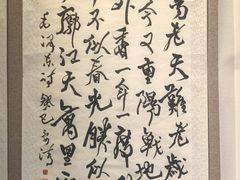 易老天難老歲
今又重陽戰地
外香一年一度
不似春光勝似
廓江天萬里
毛澤東詩癸巳